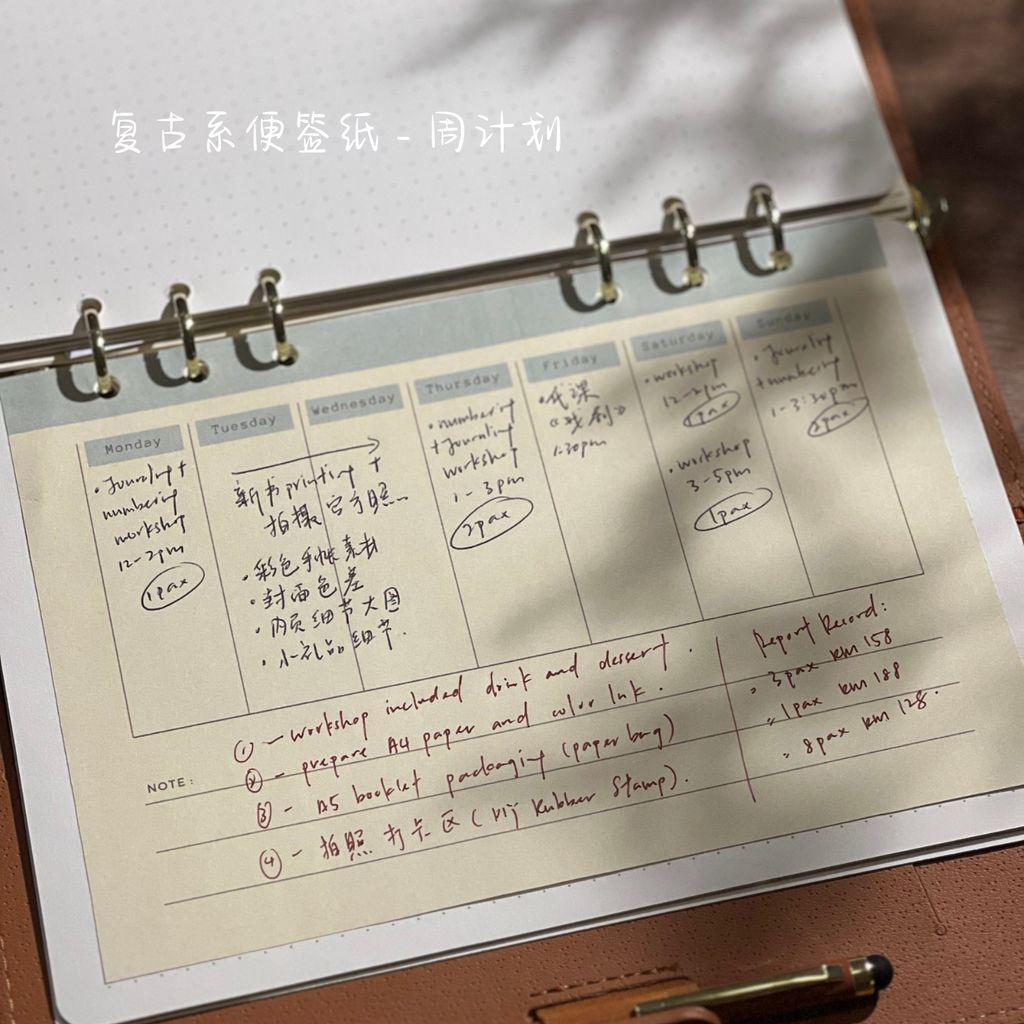 复古系便签纸 - 周计划
Monday
• Journaling +
numbering
workshop
12-2pm
1pax
Tuesday
Wednesday
新书 printing +
拍摄官方照
• 彩色手帐素材
• 封面色差
• 内页细节大图
• 小礼品细节.
Thursday
• numbering
+ Journaling
workshop
1-3pm
2pax
Friday
• 代课
1.30pm
Saturday
• workshop
12-2pm
1pax
• workshop
3-5pm
1pax
Sunday
• Journaling
+ numbering
1-3:30pm
2pax
NOTE:
① - workshop included drink and dessert.
② - prepare A4 paper and color Ink.
③ - A5 booklet packaging (paper bag)
④ - 拍照打卡区 (Rubber Stamp).
Report Record:
3pax RM 158
1pax RM 188
8pax RM 128.